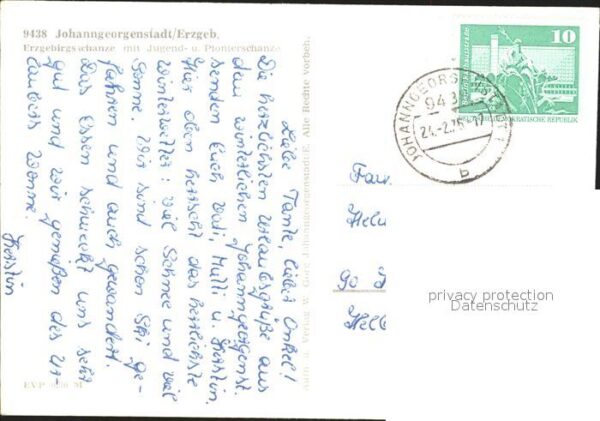 9438 Johanngeorgenstadt/Erzgeb.
Erzgebirgsschanze mit Jugend- u. Pionierschanze
Liebe Tante, lieber Onkel!
Die herzlichsten Urlaubsgrüße aus
dem winterlichen Johanngeorgenst.
senden Euch Vati, Mutti u. Kerstin.
Hier oben herrscht das herrlichste
Winterwetter: viel Schnee und viel
Sonne. Wir sind schon Ski ge-
fahren und auch gewandert.
Das Essen schmeckt uns sehr
gut und wir genießen das Ur-
laubers Wonne.
Kerstin
Verlag W. Görg Johanngeorgenstadt/E. Alle Rechte vorbeh.
10
DEUTSCHE DEMOKRATISCHE REPUBLIK
JOHANNGEORGENSTADT 1
943
24.-2.75-17
b
Fam
Helm
privacy protection
Datenschutz